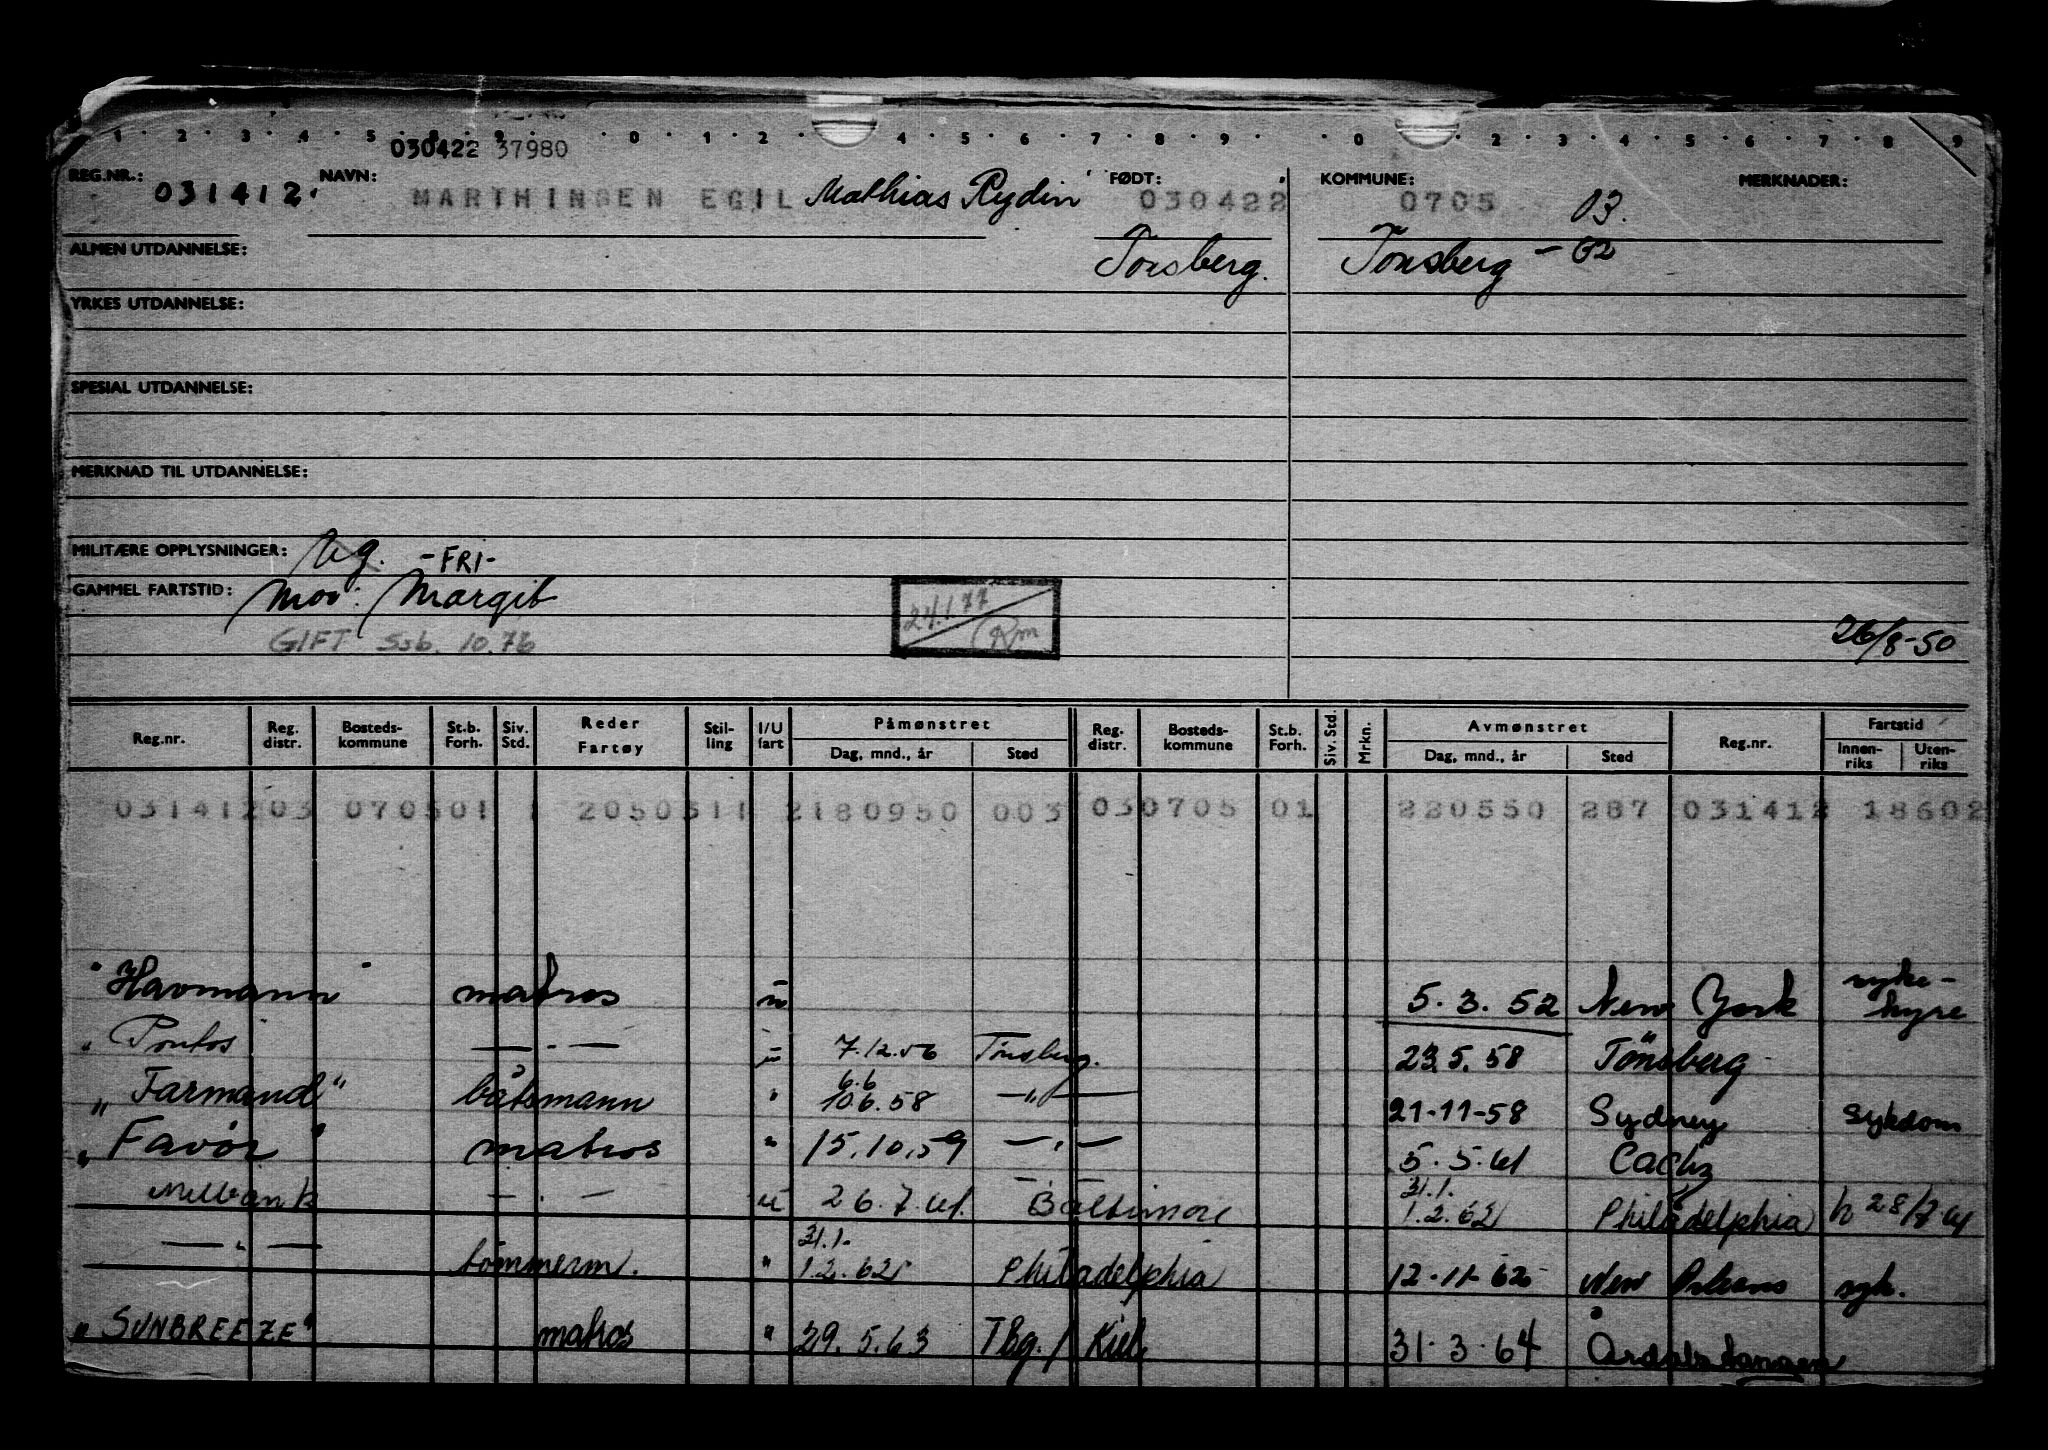 1 2 3 4 5 8 9 0 1 2 4 5 6 7 8 9 0 2 3 4 5 6 7 8 9
030422 37980
REG.NR.: 031412 NAVN: MARTHINSEN EGIL Mathias Rydin FØDT: 030422 KOMMUNE: 0705 03. MERKNADER:
ALMEN UTDANNELSE: Tönsberg. Tönsberg - 02
YRKES UTDANNELSE:
SPESIAL UTDANNELSE:
MERKNAD TIL UTDANNELSE:
MILITÆRE OPPLYSNINGER: Ug. -FRI-
GAMMEL FARTSTID: Mor: Margit
24.1.77 Rm
GIFT Ssb. 10.76 26/8-50
Reg.nr. Reg. distr. Bosteds-kommune St.b. Forh. Siv. Std. Reder Fartøy Stil-ling I/U fart Påmønstret Dag, mnd., år Sted Reg. distr. Bosteds-kommune St.b. Forh. Siv. Std. Mrkn. Avmønstret Dag, mnd., år Sted Reg.nr. Fartstid Innen-riks Uten-riks
03141203 070501 1 2050311 2180950 003 030705 01 220550 287 031412 18602
"Havmann" matros u 5.3.52 New York syke-hyre
"Pontos — " — u 7.12.56 Tönsberg. 23.5.58 Tönsberg
"Farmand" båtsmann " 6.6 10.6.58 — " — 21-11-58 Sydney sykdom
"Favör" matros " 15.10.59 — " — 5.5.61 Cadiz
Melbank — " — u 26.7.61. Baltimore 31.1. 1.2.62 Philadelphia h 28/7 61
— " — tömmerm. " 31.1. 1.2.62 Philadelphia 12-11-62 New Orleans syk.
"SUNBREEZE" matros " 29.5.63 TBg./ Kiel 31.3.64 Årdalstangen